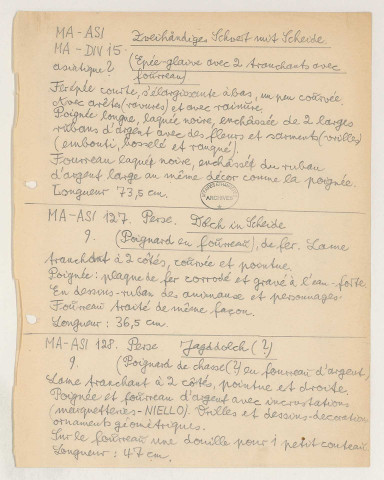 MA-ASI Zweihändiges Schwert mit Scheide.
MA-DIV 15. (Epée-glaive avec 2 tranchants avec
asiatique? fourreau)
Fer épée courte, s'élargissante à bas, un peu courvée.
Avec arêtes (ravures) et avec rainure.
Poignée longue, laquée noire, enchâssée de 2 larges
rubans d'argent avec des fleurs et sarments (vrilles)
(embouti, bosselé et
Fourreau laqué noire, enchâssét du ruban
d'argent large au même décor comme la poignée.
Longueur 73,5 cm.
ARCHIVES
MA-ASI 127. Perse. Dolch in Scheide
9. (Poignard en fourreau), de fer. Lame
tranchant à 2 côtés, courvée et pointue.
Poignée: plaque de fer corrodé et gravé à l'eau-forte.
En dessins-ruban des animaux et personnages.
Fourreau traité de même façon.
Longueur: 36,5 cm.
MA-ASI 128. Perse Jagddolch (?)
9. (Poignard de chasse(?) en fourreau d'argent)
Lame tranchant à 2 côtés, pointue et droite.
Poignée et fourreau d'argent avec incrustations
(marquetteries-NIELLO). Vrilles et dessins-decoration
ornaments géométriques.
Sur le fourreau une douille pour 1 petit couteau
Longueur: 47 cm.